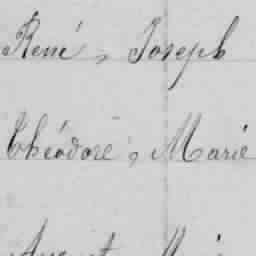 René, Joseph
Théodore, Marie